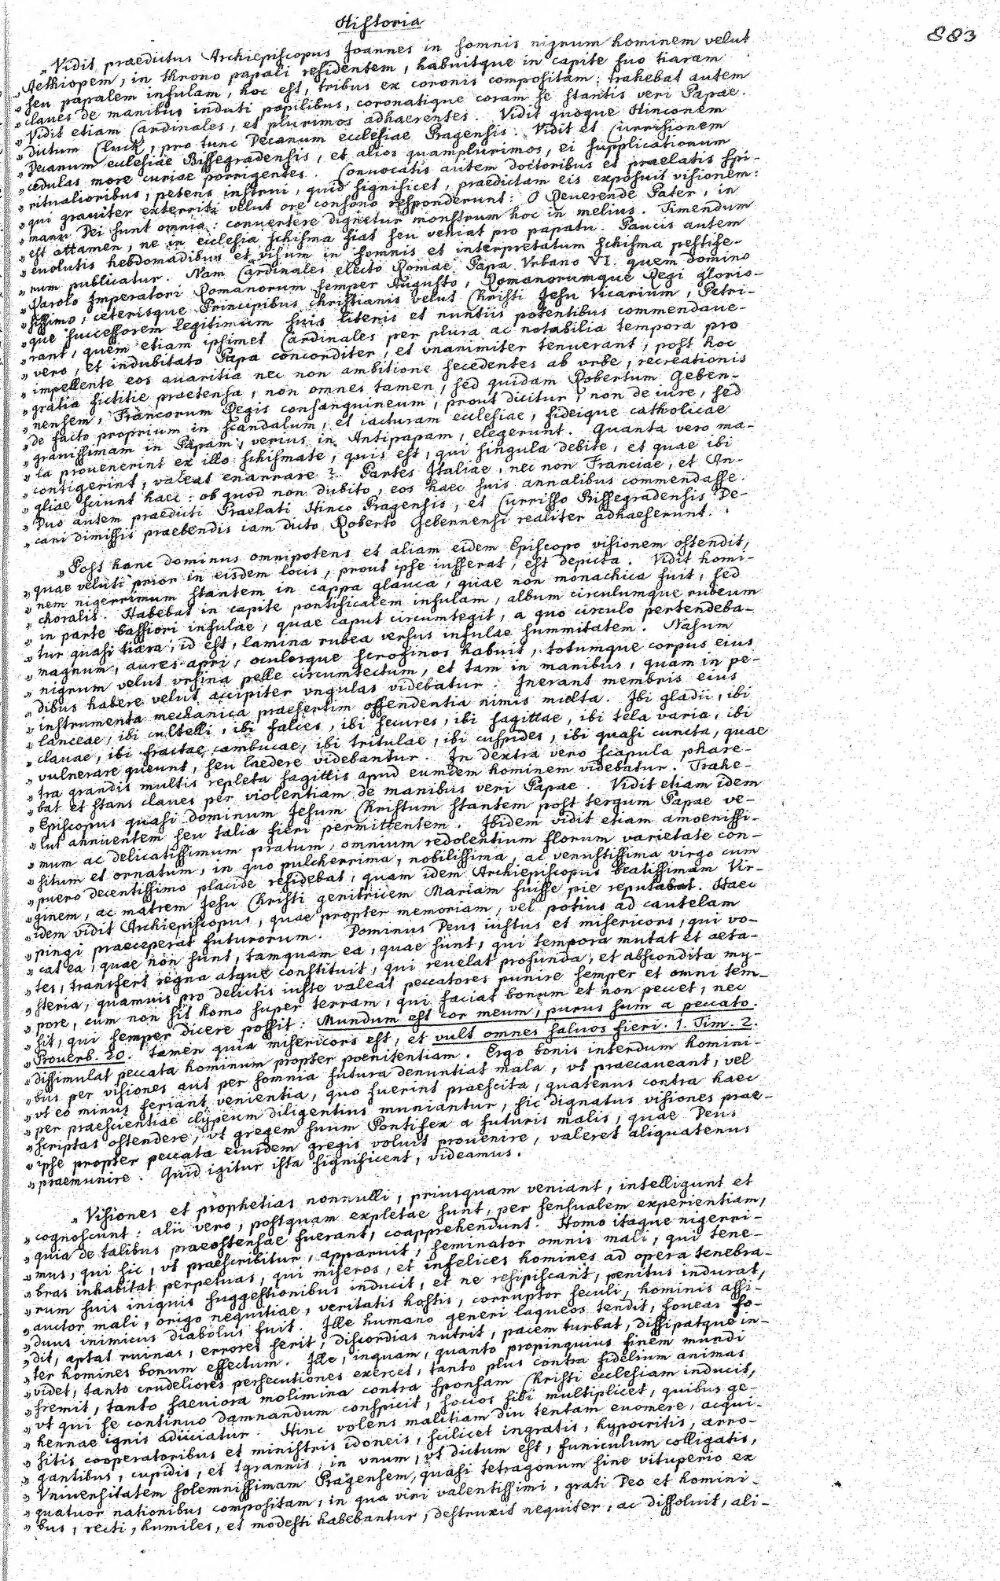 Historia
883
„Vidit praedictus Archiepiscopus Joannes in somnis nigrum hominem velut
„Aethiopem, in throno papali residentem, habuitque in capite suo tiaram
„seu papalem infulam, hoc est, tribus ex coronis compositam: trahebat autem
„claves de manibus induti papilibus, coronatique coram se stantis veri Papae.
„Vidit etiam Cardinales, et plurimos adhaerentes. Vidit quoque Hinconem
„dictum Cluk, pro tunc Decanum ecclesiae Pragensis. Vidit et Currisionem
„Decanum ecclesiae Wissegradensis, et alios quamplurimos, ei supplicationum
„cedulas more curiae porrigentes. Convocatis autem doctoribus et praelatis spi-
„ritualioribus, petens instrui, quid significet, praedictam eis exposuit visionem:
„qui graviter exterriti velut ore consono responderunt: O Reverende Pater, in
„manu Dei sunt omnia: convertere dignetur monstrum hoc in melius. Timendum
„est attamen, ne in ecclesia schisma fiat seu veniat pro papatu. Paucis autem
„evolutis hebdomadibus et visum in somnis et interpretatum schisma pestife-
„rum publicatur. Nam Cardinales electo Romae Papa Urbano VI. quem domino
„Karolo Imperatori Romanorum semper Augusto, Romanorumque Regi glorio-
„sissimo, ceterisque Principibus christianis velut Christi Jesu Vicarium, Petri-
„que successorem legitimum suis literis et nuntiis potentibus commendave-
„rant, quem etiam ipsimet Cardinales per plura ac notabilia tempora pro
„vero, et indubitato Papa concorditer, et vnanimiter tenuerant, post hoc
„impellente eos auaritia nec non ambitione secedentes ab vrbe, recreationis
„gratia fictitie praetensa, non omnes tamen, sed quidam Robertum Geben-
„nensem, Francorum Regis consanguineum, prout dicitur, non de iure, sed
„de facto proprium in scandalum, et iacturam ecclesiae, fideique catholicae
„grauissimam in Papam, verius in Antipapam, elegerunt. Quanta vero ma-
„la prouenerint ex illo schismate, quis est, qui singula debite, et quae ibi
„contigerint, valeat enarrare? Partes Italiae, nec non Franciae, et An-
„gliae sciunt haec: ob quod non dubito, eos haec suis annalibus commendasse.
„Duo autem praedicti Praelati Hinco Pragensis, et Currisso Wissegradensis De-
„cani dimissis praebendis iam dicto Roberto Gebennensi realiter adhaeserunt.
„Post hanc dominus omnipotens et aliam eidem Episcopo visionem ostendit,
„quae veluti prior in eisdem locis, prout ipse iusserat, est depicta. Vidit homi-
„nem nigerrimum stantem in cappa glauca, quae non monachica fuit, sed
„choralis. Habebat in capite pontificalem infulam, album circulumque rubeum
„in parte bassiori infulae, quae caput circumtegit, a quo circulo pertendeba-
„tur quasi tiara, id est, lamina rubea versus infulae summitatem. Nasum
„magnum, aures apri, oculosque scrofinos habuit, totumque corpus eius
„nigrum velut vrsina pelle circumtectum, et tam in manibus, quam in pe-
„dibus habere velut accipiter vngulas videbatur. Inerant membris eius
„instrumenta mechanica praesertim offendentia nimis multa. Ibi gladii, ibi
„lanceae, ibi cultelli, ibi falces, ibi secures, ibi sagittae, ibi tela varia, ibi
„clavae, ibi fractae cambucae, ibi tritulae, ibi cuspides, ibi quasi cuncta, quae
„vulnerare queunt, seu laedere videbantur. In dextra vero scapula phare-
„tra grandis multis repleta sagittis apud eumdem hominem videbatur. Trahe-
„bat et stans claves per violentiam de manibus veri Papae. Vidit etiam idem
„Episcopus quasi dominum Jesum Christum stantem post tergum Papae ve-
„lut annuentem seu talia fieri permittentem. Ibidem vidit etiam amoenissi-
„mum ac delicatissimum pratum, omnium redolentium florum varietate con-
„situm et ornatum, in quo pulcherrima, nobilissima, ac venustissima virgo cum
„puero decentissimo placide residebat, quam idem Archiepiscopus beatissimam Vir-
„ginem, ac matrem Jesu Christi genitricem Mariam fuisse pie reputabat. Haec
„idem vidit Archiepiscopus, quae propter memoriam, vel potius ad cautelam
„pingi praeceperat futurorum. Dominus Deus iustus et misericors, qui vo-
„cat ea, quae non sunt, tamquam ea, quae sunt, qui tempora mutat et aeta-
„tes, transfert regna atque constituit, qui reuelat profunda, et abscondita my-
„steria, quamuis pro delictis iuste valeat peccatores punire semper et omni tem-
„pore, cum non sit homo super terram, qui faciat bonum et non peccet, nec
„sit, qui semper dicere possit: Mundum est cor meum, purus sum a peccato.
„Prouerb. 20. tamen quia misericors est, et vult omnes saluos fieri. 1. Tim. 2.
„dissimulat peccata hominum propter poenitentiam. Ergo bonis interdum homini-
„bus per visiones aut per somnia futura denuntiat mala, vt praecaueant, vel
„vt eo minus feriant venientia, quo fuerint praescita, quatenus contra haec
„per praescientiae clypeum diligentius muniantur, sic dignatus visiones prae-
„scriptas ostendere, vt gregem suum Pontifex a futuris malis, quae Deus
„ipse propter peccata eiusdem gregis voluit prouenire, valeret aliquatenus
„praemunire. Quid igitur ista significent, videamus.
„Visiones et prophetias nonnulli, priusquam veniant, intelligunt et
„cognoscunt: alii vero, postquam expletae sunt, per sensualem experientiam,
„quia de talibus praeostensae fuerant, coapprehendunt. Homo itaque nigerri-
„mus, qui sic, vt praescribitur, apparuit, seminator omnis mali, qui tene-
„bras inhabitat perpetuas, qui miseros, et infelices homines ad opera tenebra-
„rum suis iniquis suggestionibus inducit, et ne resipiscant, penitus indurat,
„auctor mali, origo nequitiae, veritatis hostis, corruptor seculi, hominis assi-
„duus inimicus diabolus fuit. Ille humano generi laqueos tendit, foueas fo-
„dit, aptat ruinas, errores serit, discordias nutrit, pacem turbat, dissipatque in-
„ter homines bonum effectum. Ille, inquam, quanto propinquius finem mundi
„videt, tanto crudeliores persecutiones exercet, tanto plus contra fidelium animas
„fremit, tanto saeuiora molimina contra sponsam Christi ecclesiam inducit,
„vt qui se continuo damnandum conspicit, socios sibi multiplicet, quibus ge-
„hennae ignis adiiciatur. Hinc volens malitiam diu tentam euomere, acqui-
„sitis cooperatoribus et ministris idoneis, scilicet ingratis, hypocritis, arro-
„gantibus, cupidis, et tyrannis, in vnum, vt dictum est, funiculum colligatis,
„Vniuersitatem solemnissimam Pragensem, quasi tetragonum sine vituperio ex
„quatuor nationibus compositam, in qua viri valentissimi, grati Deo et homini-
„bus, recti, humiles, et modesti habebantur, destruxit nequiter, ac dissoluit, ali-